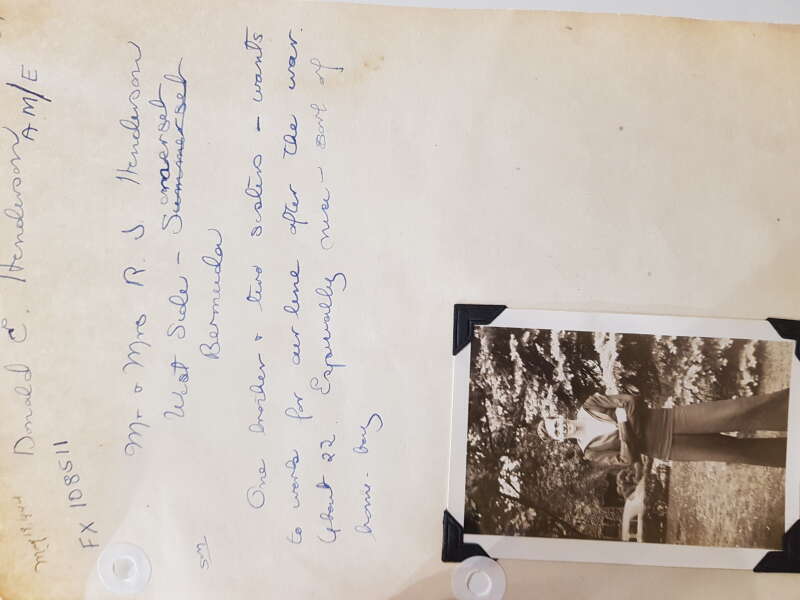 Donald E. Henderson
A.M/E
FX 108511
Mr & Mrs R. J. Henderson
West Side - Somerset
Summerset
Bermuda
SM
One brother & two sisters - wants
to work for air line after the war.
About 22. Especially nice - sort of
home-boy